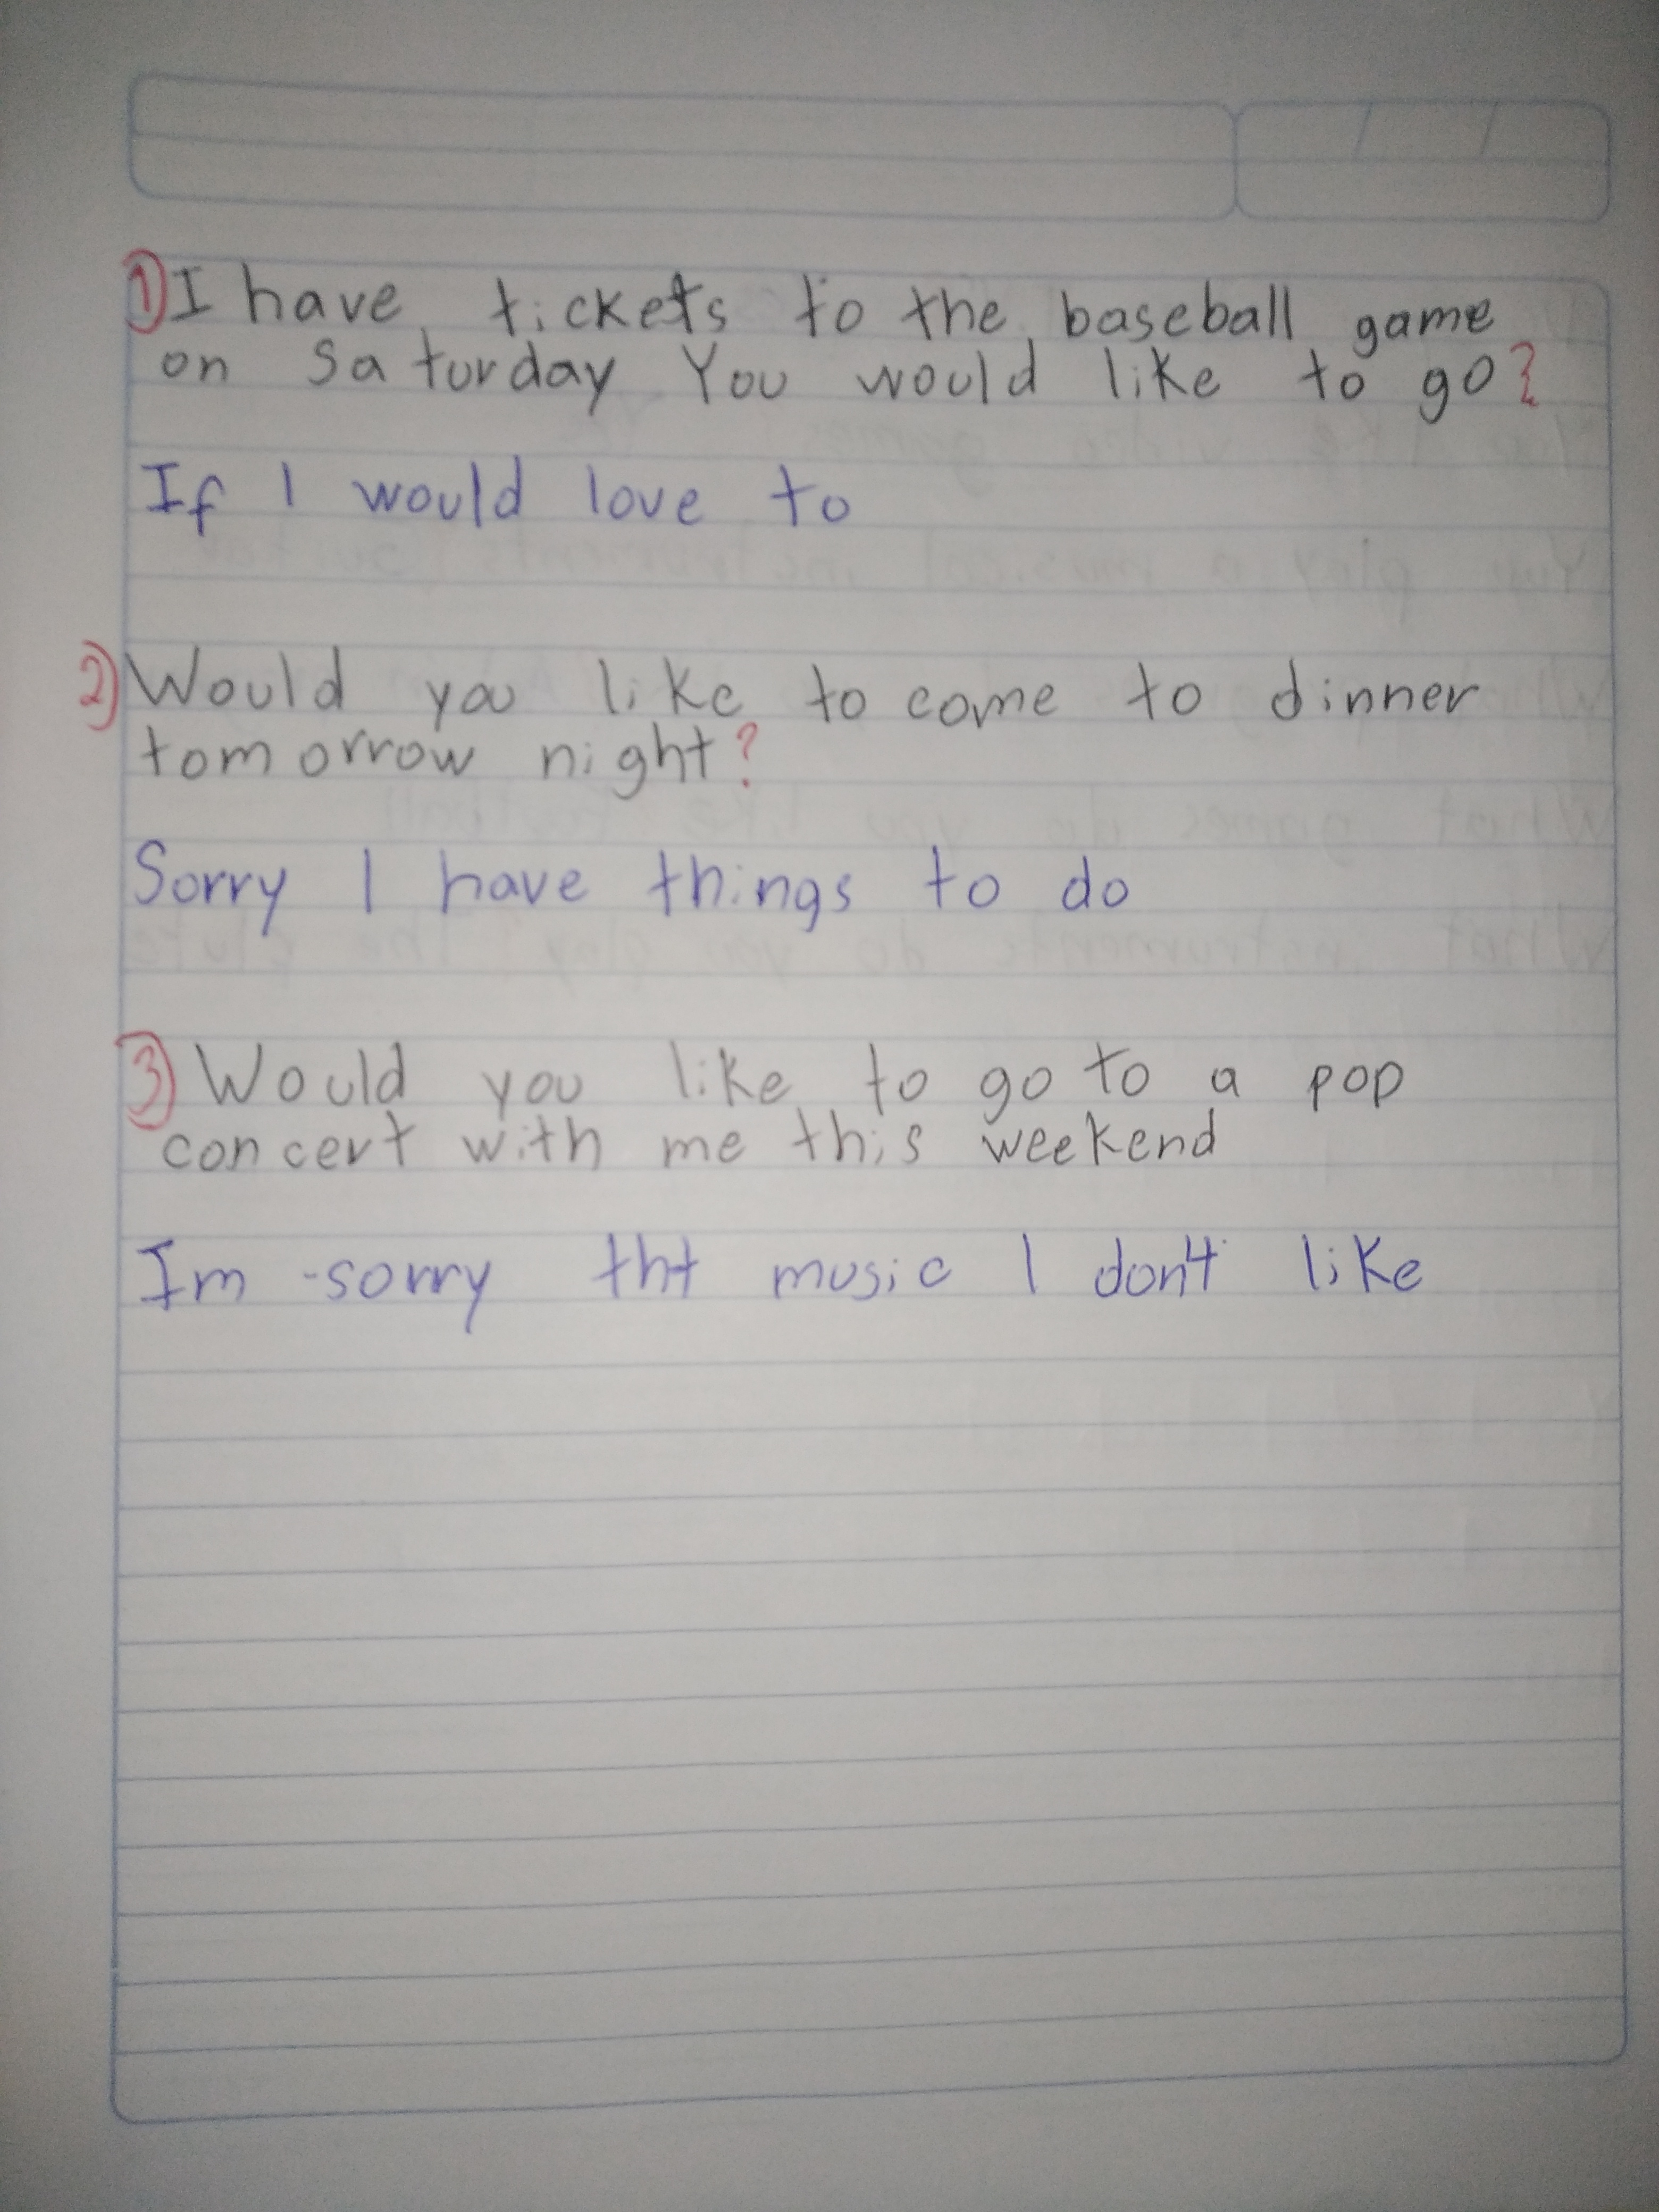 1) I have tickets to the baseball game
on Saturday You would like to go?
If I would love to
2) Would you like to come to dinner
tomorrow night?
Sorry I have things to do
3) Would you like to go to a pop
concert with me this weekend
Im sorry tht music I don't like